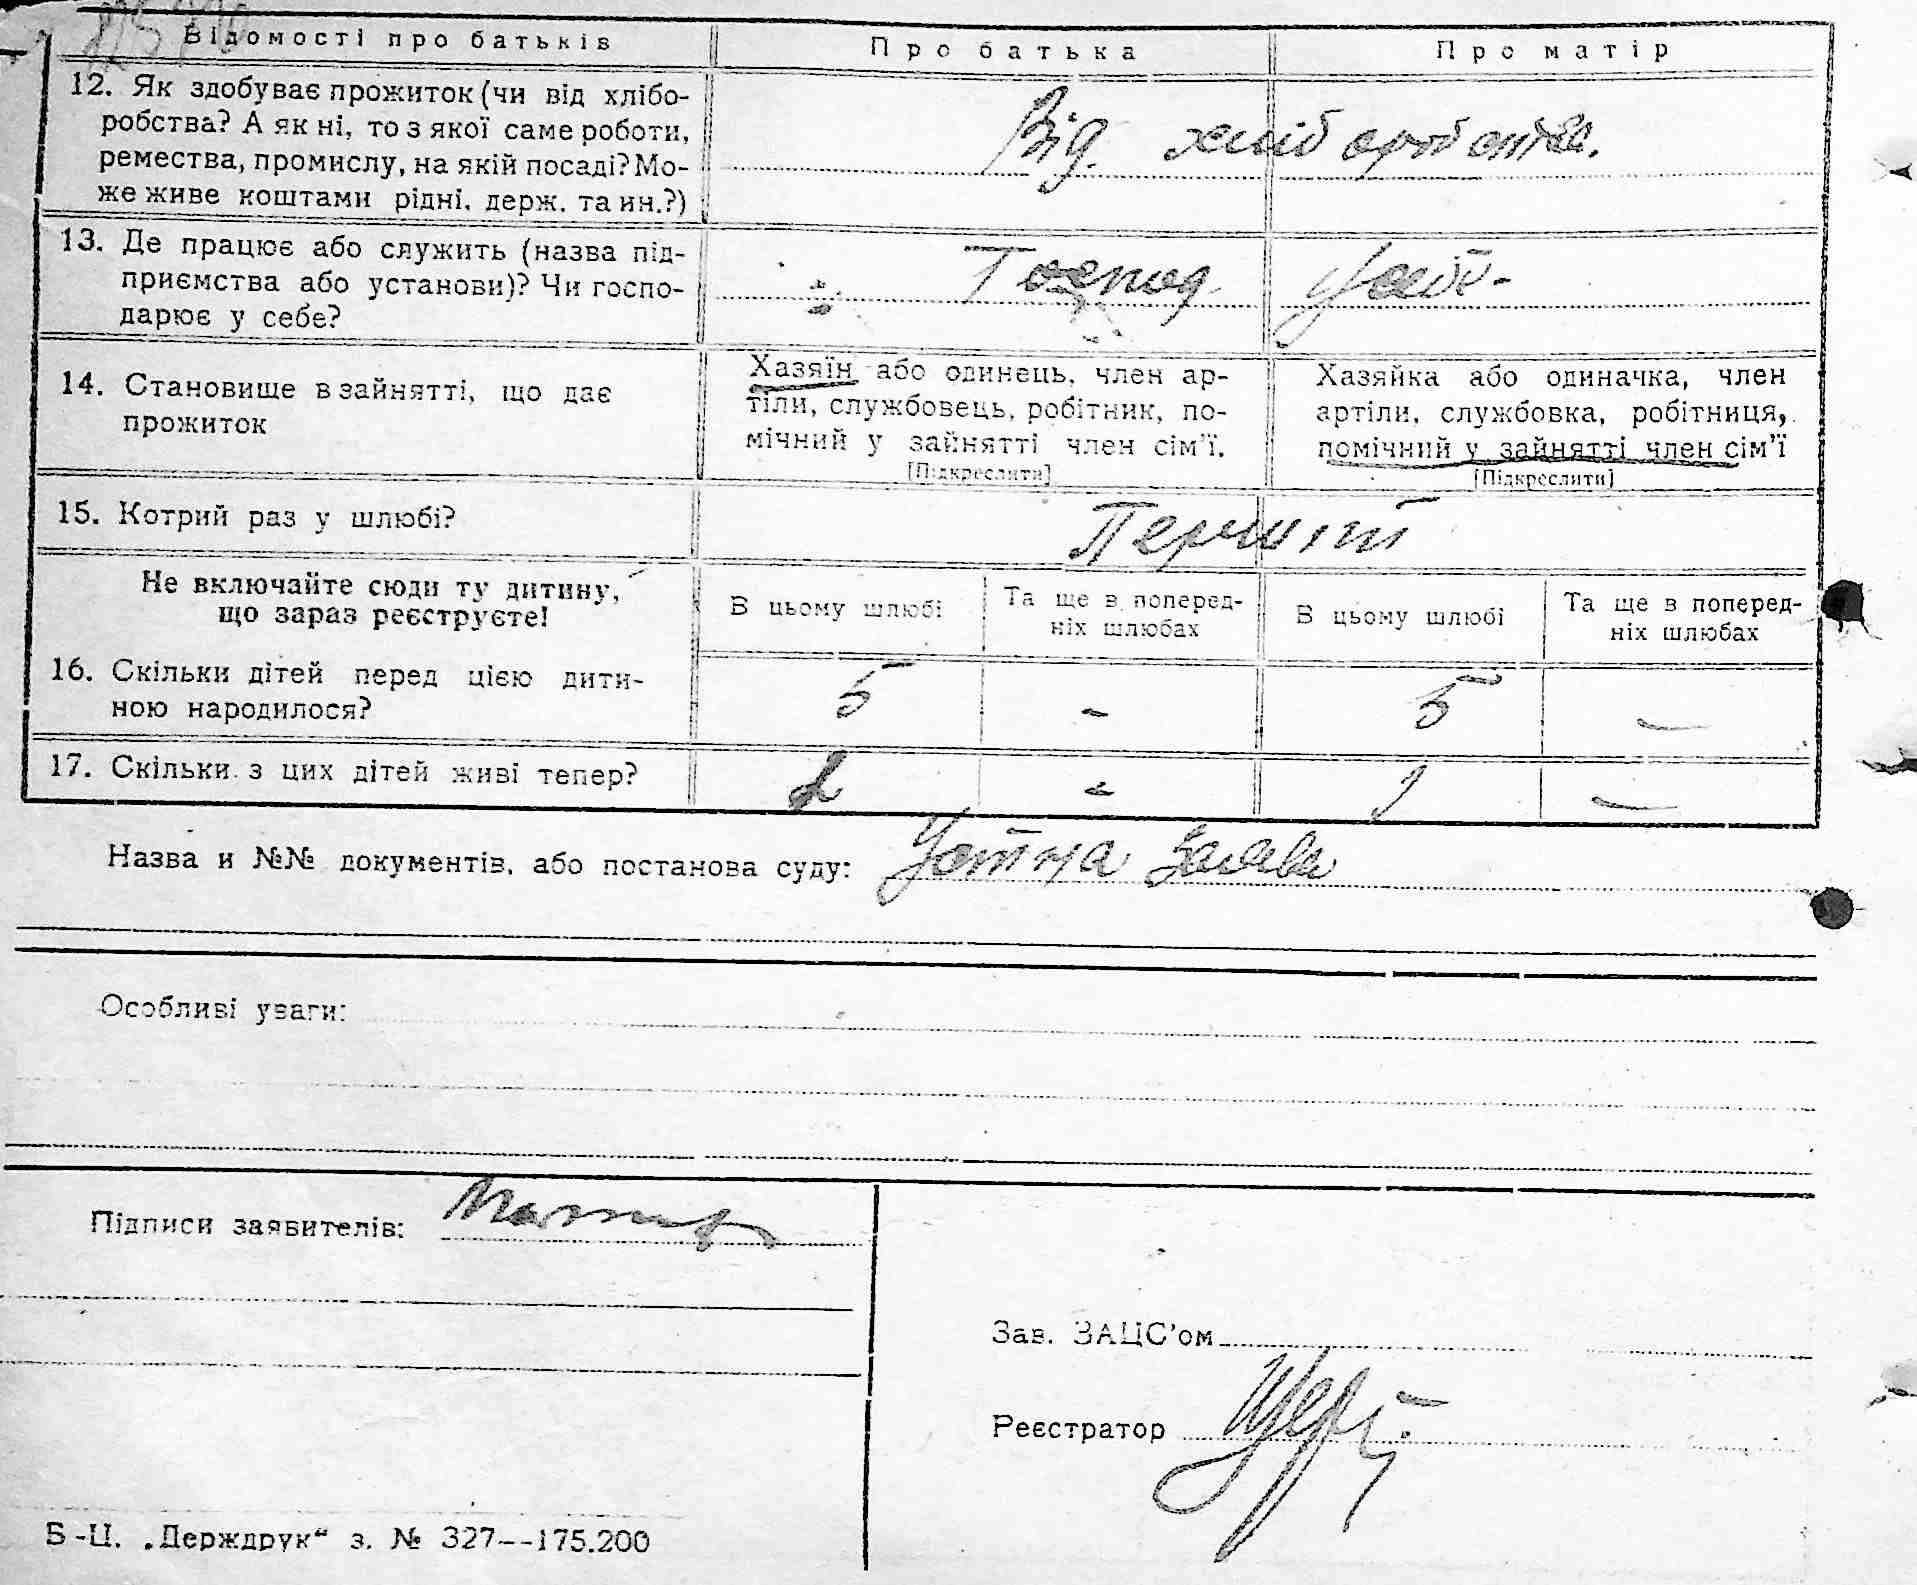 Відомості про батьків
Про батька
Про матір
12. Як здобуває прожиток (чи від хлібо-
робства? А як ні, то з якої саме роботи,
ремества, промислу, на якій посаді? Мо-
же живе коштами рідні, держ. та ин.?)
Від хліборобства.
13. Де працює або служить (назва під-
приємства або установи)? Чи госпо-
дарює у себе?
Господ
14. Становище в зайнятті, що дає
прожиток
Хазяїн або одинець, член ар-
тіли, службовець, робітник, по-
мічний у зайнятті член сім'ї.
[Підкреслити]
Хазяйка або одиначка, член
артіли, службовка, робітниця,
помічний у зайнятті член сім'ї
[Підкреслити]
15. Котрий раз у шлюбі?
Перший
Не включайте сюди ту дитину,
що зараз реєструєте!
В цьому шлюбі
Та ще в поперед-
ніх шлюбах
В цьому шлюбі
Та ще в поперед-
ніх шлюбах
16. Скільки дітей перед цією дити-
ною народилося?
5 - 5 —
17. Скільки з цих дітей живі тепер?
2 - —
Назва и №№ документів, або постанова суду: Устна заява
Особливі уваги:
Підписи заявителів:
Зав. ЗАЦС'ом
Реєстратор
Б-Ц. „Держдрук“ з. № 327--175.200